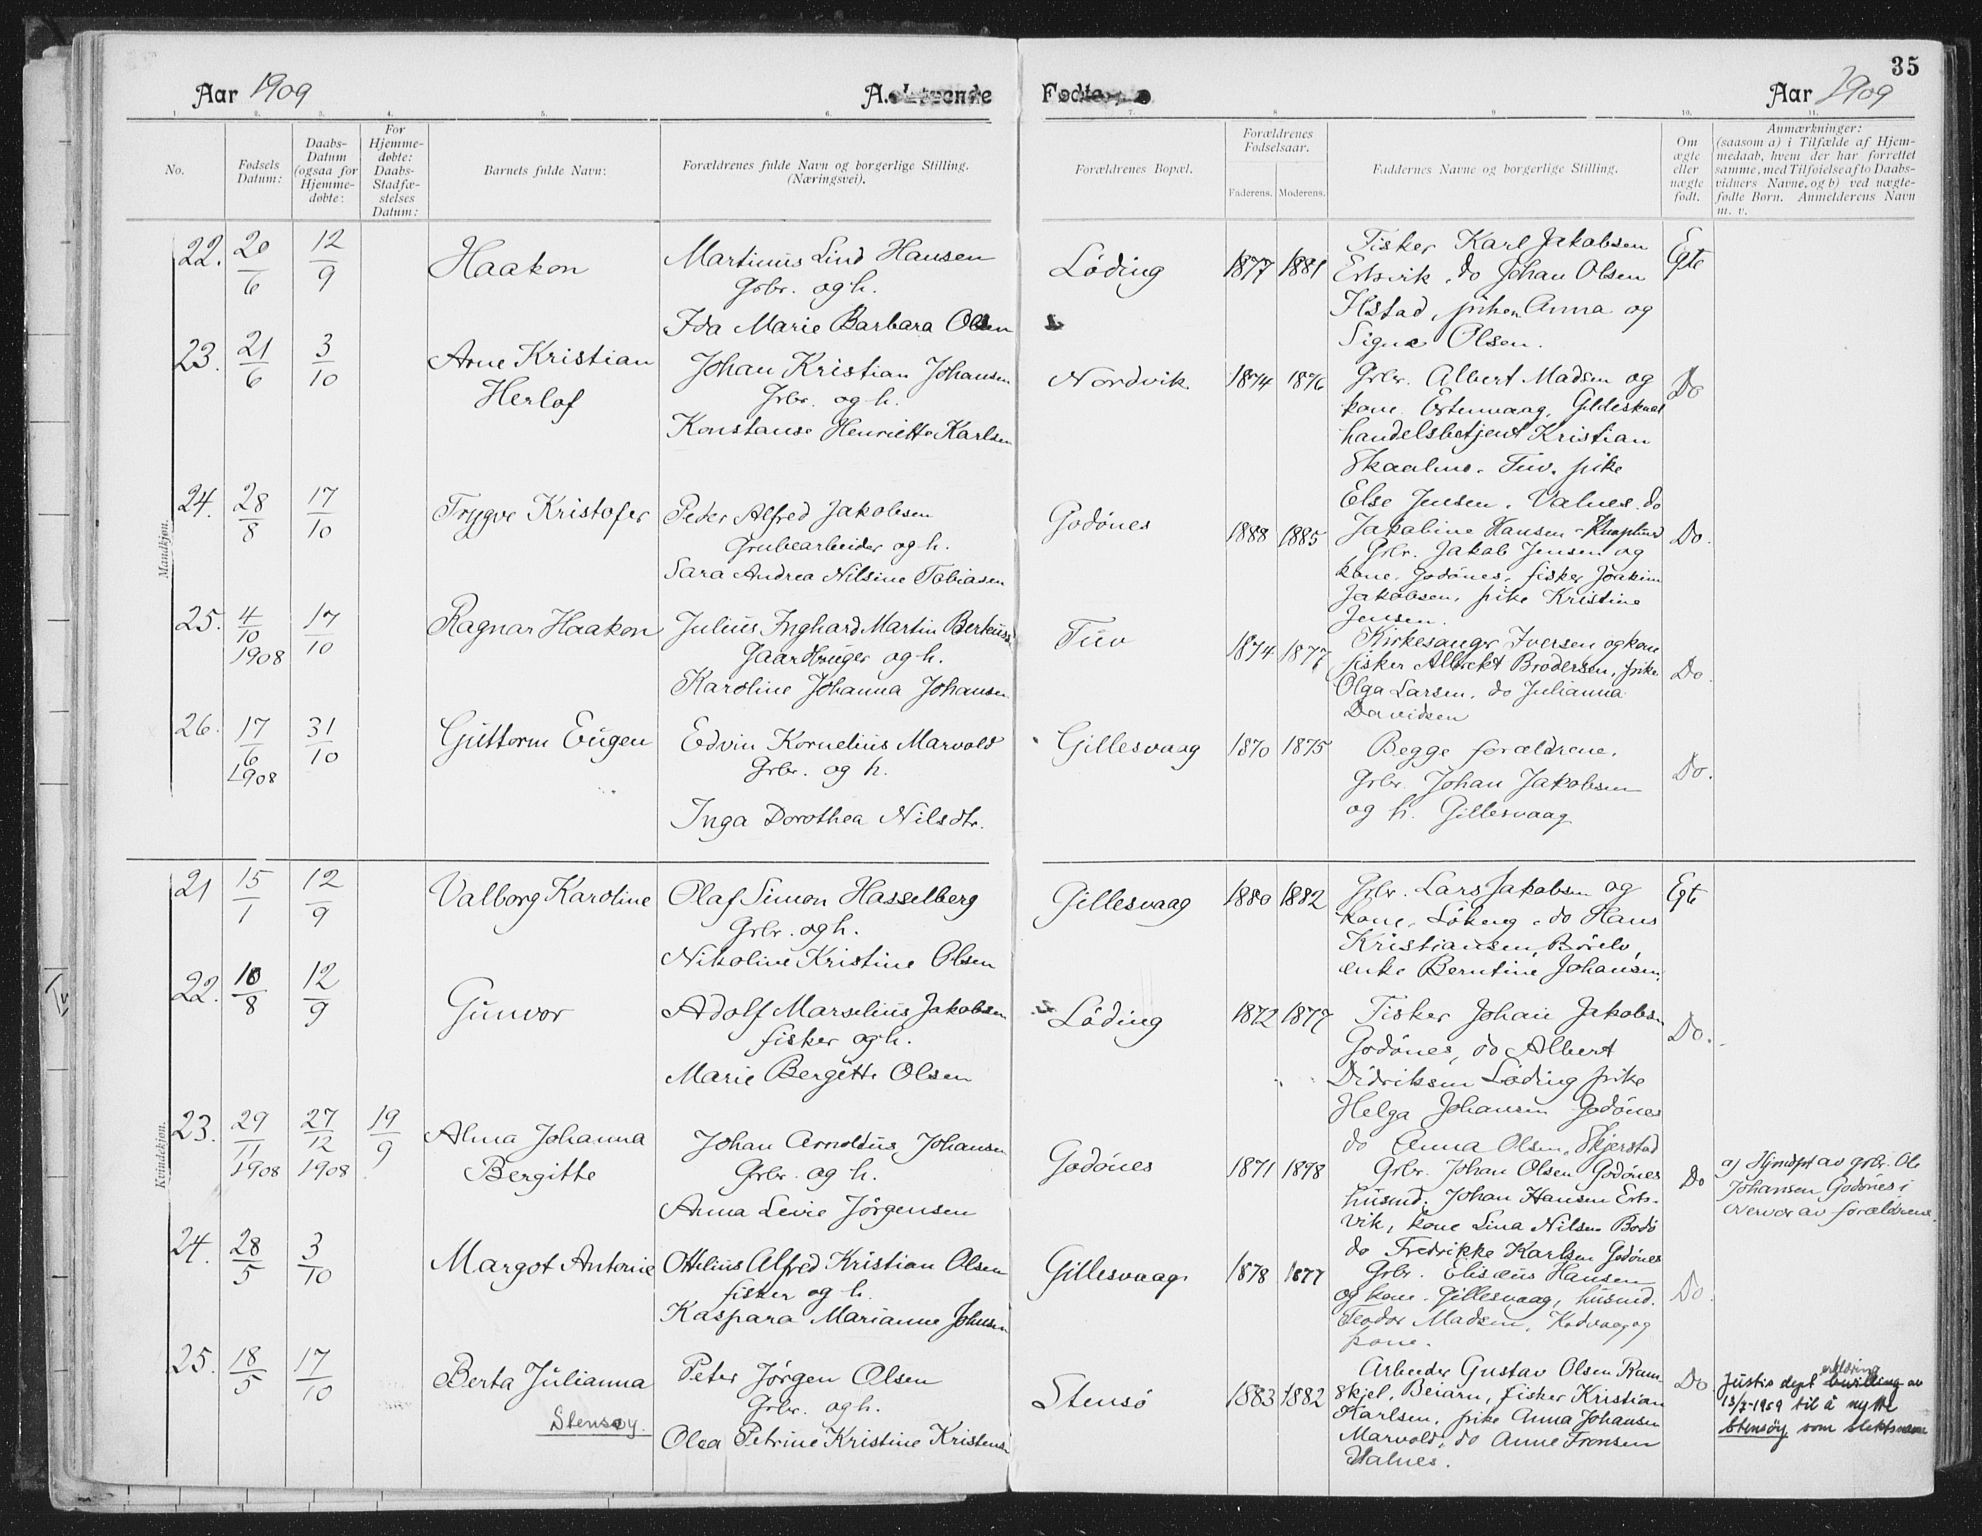 35
Aar 1909
A. Levende
Fødte
Aar 1909
1. 2. 3. 4. 5. 6. 7. 8. 9. 10. 11.
No.
Fødsels Datum:
Daabs-Datum (ogsaa for Hjemmedøbte:
For Hjemmedøbte: Daabs-Stadfæstelses Datum:
Barnets fulde Navn:
Forældrenes fulde Navn og borgerlige Stilling. (Næringsvei).
Forældrenes Bopæl.
Forældrenes Fødselsaar.
Faderens. Moderens.
Faddernes Navne og borgerlige Stilling.
Om ægte eller uægte født.
Anmærkninger: (saasom a) i Tilfælde af Hjemmedaab, hvem der har forrettet samme, med Tilføielse af to Daabsvidners Navne, og b) ved uægtefødte Børn. Anmelderens Navn m. v.
Mandkjøn.
22. 20/6 12/9 Haakon
Martinus Lind Hansen
Grbr. og h.
Ida Marie Barbara Olsen
Løding 1877 1881
Fisker Karl Jakobsen
Ertsvik, do Johan Olsen
Ilstad, piken Anna og
Signe Olsen.
Egte
23. 21/6 3/10 Arne Kristian
Herlof
Johan Kristian Johansen
Grbr. og h.
Konstanse Henriette Karlsen
Nordvik. 1874 1876
Grbr. Albert Madsen og
kone. Estenvaag, Gildeskaal
handelsbetjent Kristian
Skaalmo. Tuv. pike
Else Jensen. Valnes. do
Jakobine Hansen - Knaplund
Do
24. 28/8 17/10 Trygve Kristofer
Peder Alfred Jakobsen
Grubearbeider og h.
Sara Andrea Nilsine Tobiasen
Godønes 1888 1885
Grbr. Jakob Jensen og
kone. Godønes. fisker Joakim
Jakobsen, pike Kristine
Jensen.
Do.
25. 4/10 1908 17/10 Ragnar Haakon
Julius Inghard Martin Berkuss
Gaardbruger og h.
Karoline Johanna Johansen
Tuv 1874 1877
Kirkesanger Iversen og kone
fisker Albrekt Brodersen, pike
Olga Larsen. do Julianna
Davidsen
Do.
26. 17/6 1908 31/10 Guttorm Eugen
Edvin Kornelius Marvold
Grbr. og h.
Inga Dorothea Nilsdtr.
Gillesvaag 1870 1875
Begge forældrene.
Grbr. Johan Jakobsen
og h. Gillesvaag
Do.
Kvindekjøn.
21 15/1 12/9 Valborg Karoline
Olaf Simon Hasselberg
Grbr. og h.
Nikoline Kristine Olsen
Gillesvaag 1880 1882
Grbr. Lars Jakobsen og
kone, Løkeng. do Hans
Kristiansen, Børelv,
enke Berntine Johansen.
Egte
22. 10/8 12/9 Gunvor
Adolf Marselius Jakobsen
fisker og h.
Marie Bergitte Olsen
Løding 1872 1877
Fisker Johan Jakobsen
Godønes, do Albert
Didriksen Løding pike
Helga Johansen Godønes
do Anna Olsen, Skjerstad
Do.
23. 29/11 1908 27/12 1908 19/9 Alma Johanna
Bergitte
Johan Arnoldus Johansen
Grbr. og h.
Anna Levie Jørgensen
Godønes 1871 1878
Grbr. Johan Olsen Godønes
husmd. Johan Hansen Erts-
vik, kone Lina Nilsen Bodø
do Fredrikke Karlsen Godønes
Do
a) Hjmdpt av grbr. Ole
Johansen Godønes i
overvær av forældrene.
24. 28/5 3/10 Margot Antonie
Ottelius Alfred Kristian Olsen
fisker og h.
Kaspara Marianne Johnsen
Gillesvaag. 1878 1877
Grbr. Elisæus Hansen
og kone. Gillesvaag, husmd.
Teodor Madsen, Kodvaag og
kone.
Do.
25. 18/5 17/10 Berta Julianna
Stensøy.
Peter Jørgen Olsen
Grbr. og h.
Olea Petrine Kristine Kristensen
Stensø 1883 1882
Arbeider Gustav Olsen Ram-
skjel, Beiarn, fisker Kristian
Karlsen, pike Anna Johansen
Marvold, do Anne Fronsen
Valnes.
Do
erklæring
Justis dept bevilling av
13/7-1959 til å nytte
Stensøy som slektsnavn